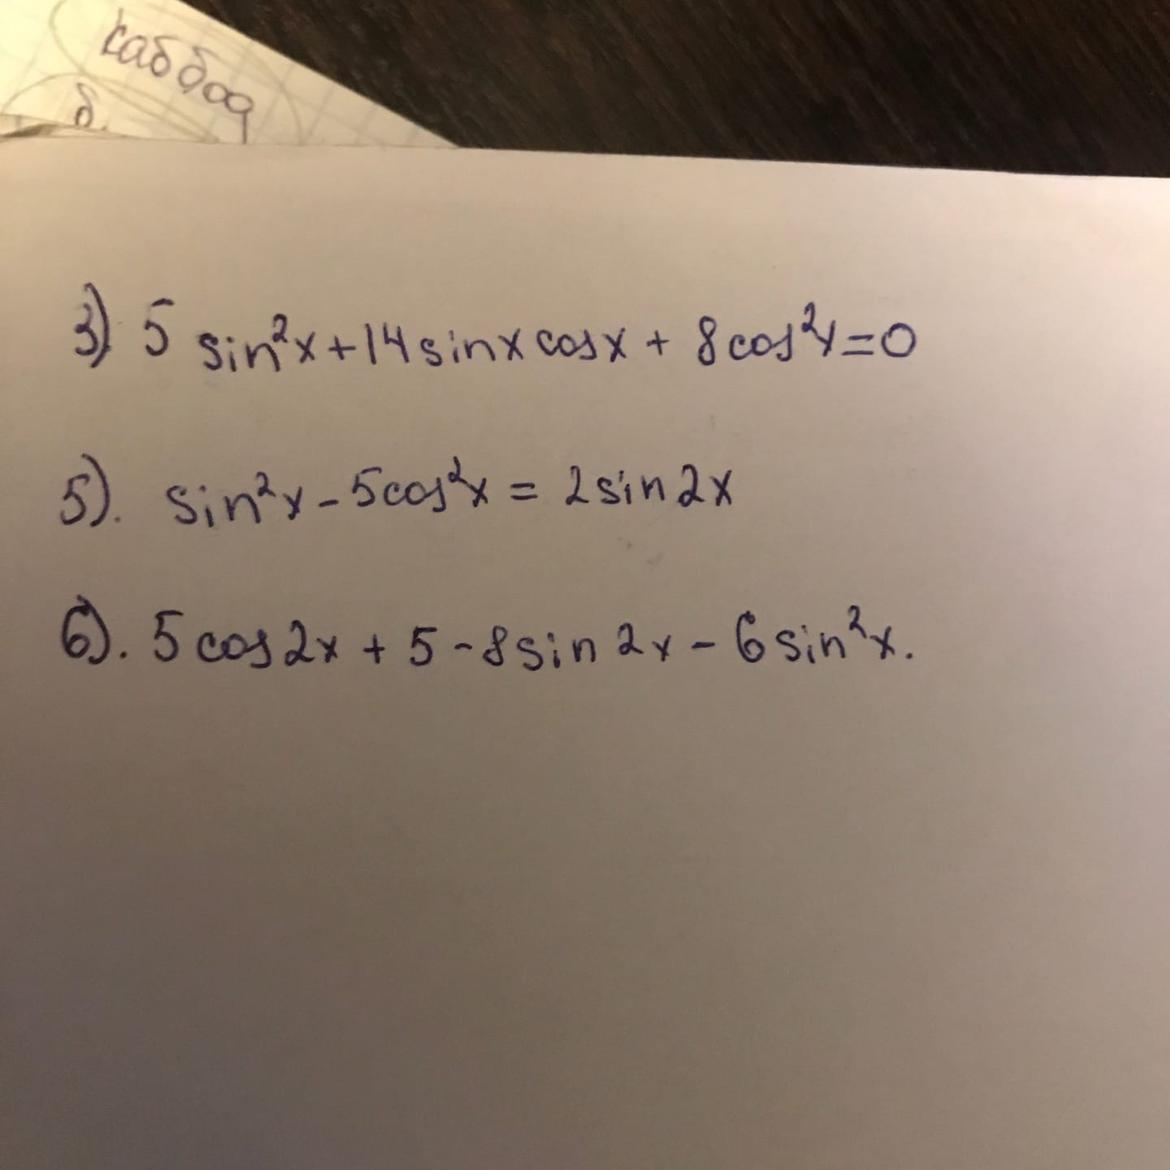 б
3) 5 sin²x + 14 sinx cosx + 8 cos²x = 0
5). sin²x - 5cos²x = 2 sin 2x
6). 5 cos 2x + 5 - 8 sin 2x - 6 sin²x.